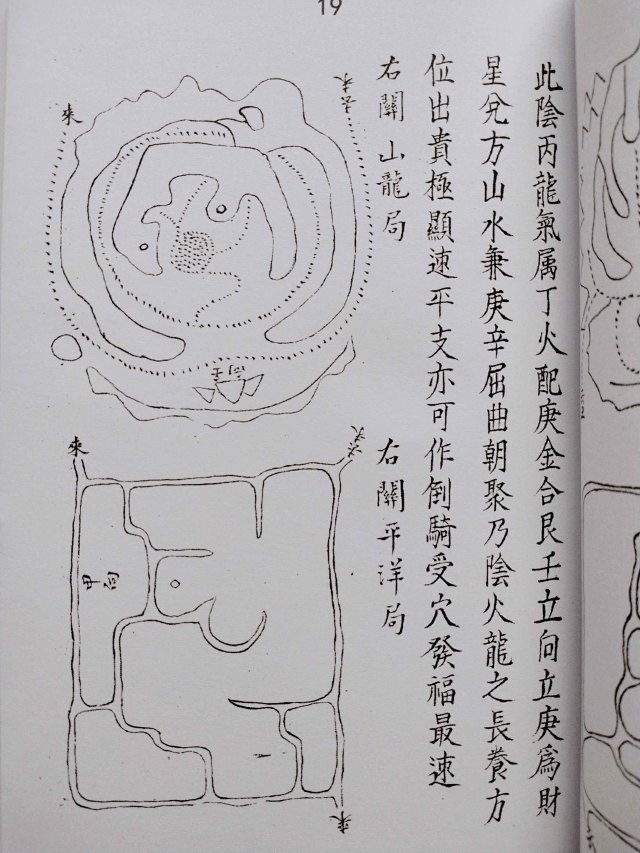 19
此陰丙龍氣属丁火配庚金合艮壬立向立庚爲財
星兌方山水兼庚辛屈曲朝聚乃陰火龍之長養方
位出貴極顯速平支亦可作倒騎受穴發福最速
右關山龍局
右關平洋局
來
去未
向壬
來
甲向
來